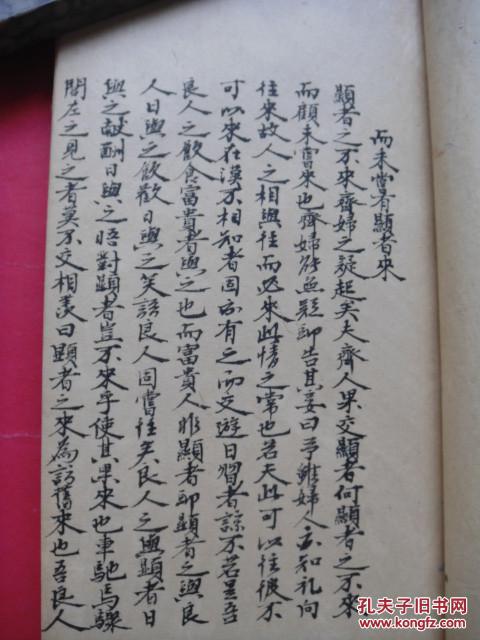 而未嘗有顯者來
顯者之不來齊婦之疑起矣夫齊人果交顯者何顯者之不來
而顧未嘗來也齊婦能無疑卽告其妾曰予雖婦人亦知礼向
往來故人之相與往而必來此情之常也若夫此可以往彼不
可以來在漠不相知者固亦有之而交遊日習者諒不若是吾
良人之飲食富貴者與之也而富貴人非顯者卽顯者之與良
人日與之飲歡日與之笑語良人固嘗往矣良人之與顯者日
與之献酬日與之晤對顯者豈不來乎使其果來也車馳馬驟
閭左之見之者莫不交相羨曰顯者之來為訪舊來也吾良人
孔夫子旧书网
KONGFZ.COM